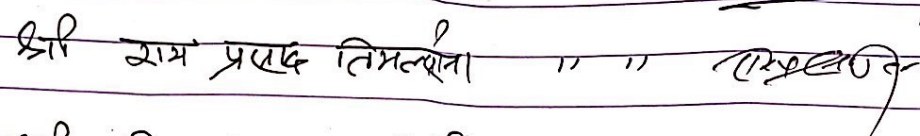 श्री राम प्रसाद तिमल्सेना " "